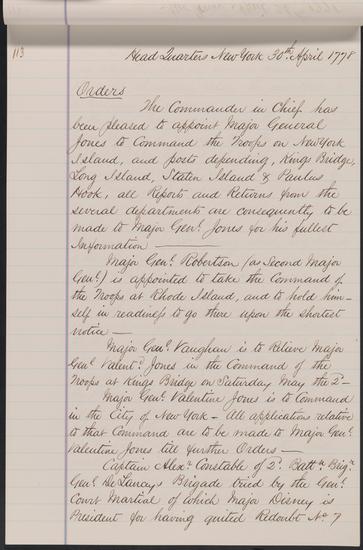 113
Head Quarters New York 30th April 1778
Orders
The Commander in Chief has
been pleased to appoint Major General
Jones to Command the Troops on New York
Island, and posts depending, Kings Bridge,
Long Island, Staten Island & Paulus
Hook, all Reports and Returns from the
several departments are consequently to be
made to Major Genl. Jones for his fullest
Information —
Major Genl. Robertson (as Second Major
Genl.) is appointed to take the Command of
the Troops at Rhode Island, and to hold him-
self in readiness to go there upon the shortest
notice —
Major Genl. Vaughan is to Relieve Major
Genl. Valentn. Jones in the Command of the
Troops at Kings Bridge on Saturday May the 2d. —
Major Genl. Valentine Jones is to Command
in the City of New York — All applications relative
to that Command are to be made to Major Genl.
Valentine Jones till further Orders —
Captain Alexr. Constable of 2d. Battn. Brigr.
Genl. De Lancey's Brigade tried by the Genl.
Court Martial of which Major Disney is
President for having quited Redoubt No. 7